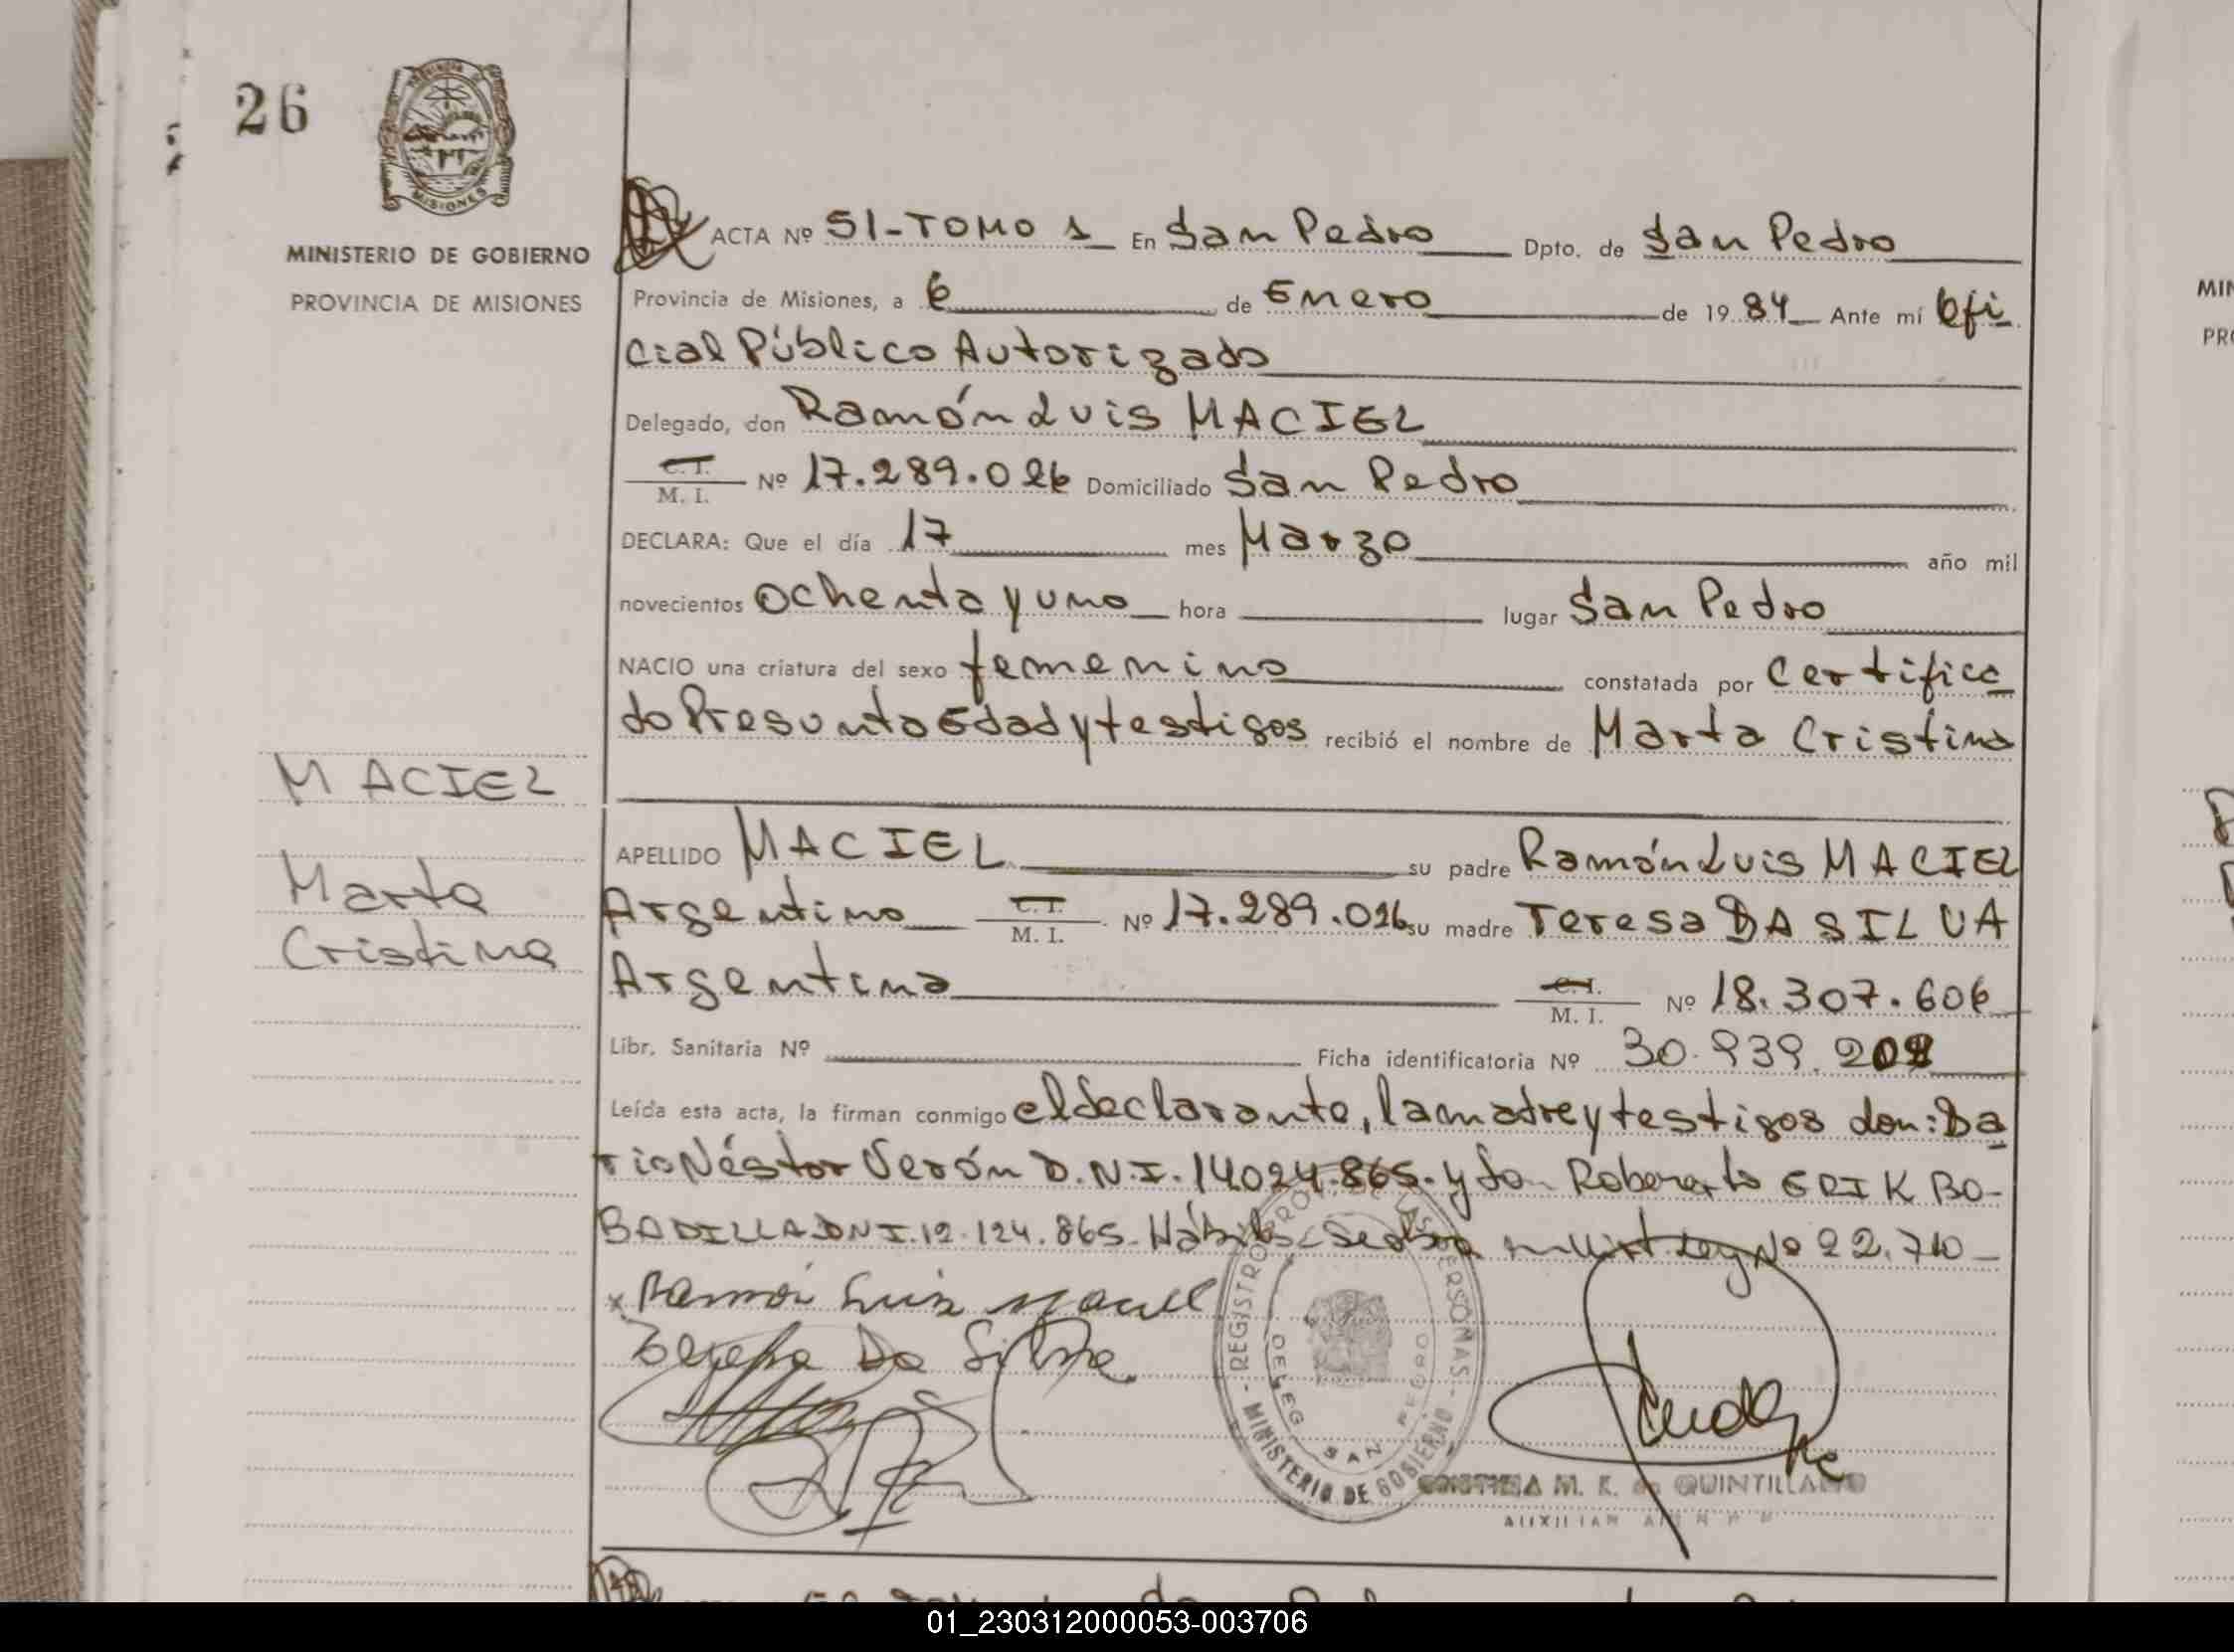 26
PROVINCIA DE
MISIONES
MINISTERIO DE GOBIERNO
PROVINCIA DE MISIONES
MACIEL
Marta
Cristina
ACTA Nº 51-TOMO 1 En San Pedro Dpto. de San Pedro
Provincia de Misiones, a 6 de Enero de 1984 Ante mí Ofi
cial Público Autorizado
Delegado, don Ramón Luis MACIEL
C.I. M. I. Nº 17.289.026 Domiciliado San Pedro
DECLARA: Que el día 17 mes Marzo año mil
novecientos ochenta y uno hora lugar San Pedro
NACIO una criatura del sexo femenino constatada por Certifica
do Presunta Edad y testigos recibió el nombre de Marta Cristina
APELLIDO MACIEL su padre Ramón Luis MACIEL
Argentino C.I. M. I. Nº 17.289.026 su madre Teresa DA SILVA
Argentina C.I. M. I. Nº 18.307.606
Libr. Sanitaria Nº Ficha identificatoria Nº 30.939.202
Leída esta acta, la firman conmigo el declarante, la madre y testigos don: Da
rio Néstor Verón D.N.I. 14024.865. y don ERIK BO-
BADILLA DNI. 12.124.865. Hábiles Ley No 22.710
Ramón Luis Maciel
Da Silva
REGISTRO PERSONAS - MINISTERIO DE GOBIERNO -
DELEG. SAN PEDRO
M. K. de QUINTILLANO
AUXILIAR
MIN
PRO
01_230312000053-003706